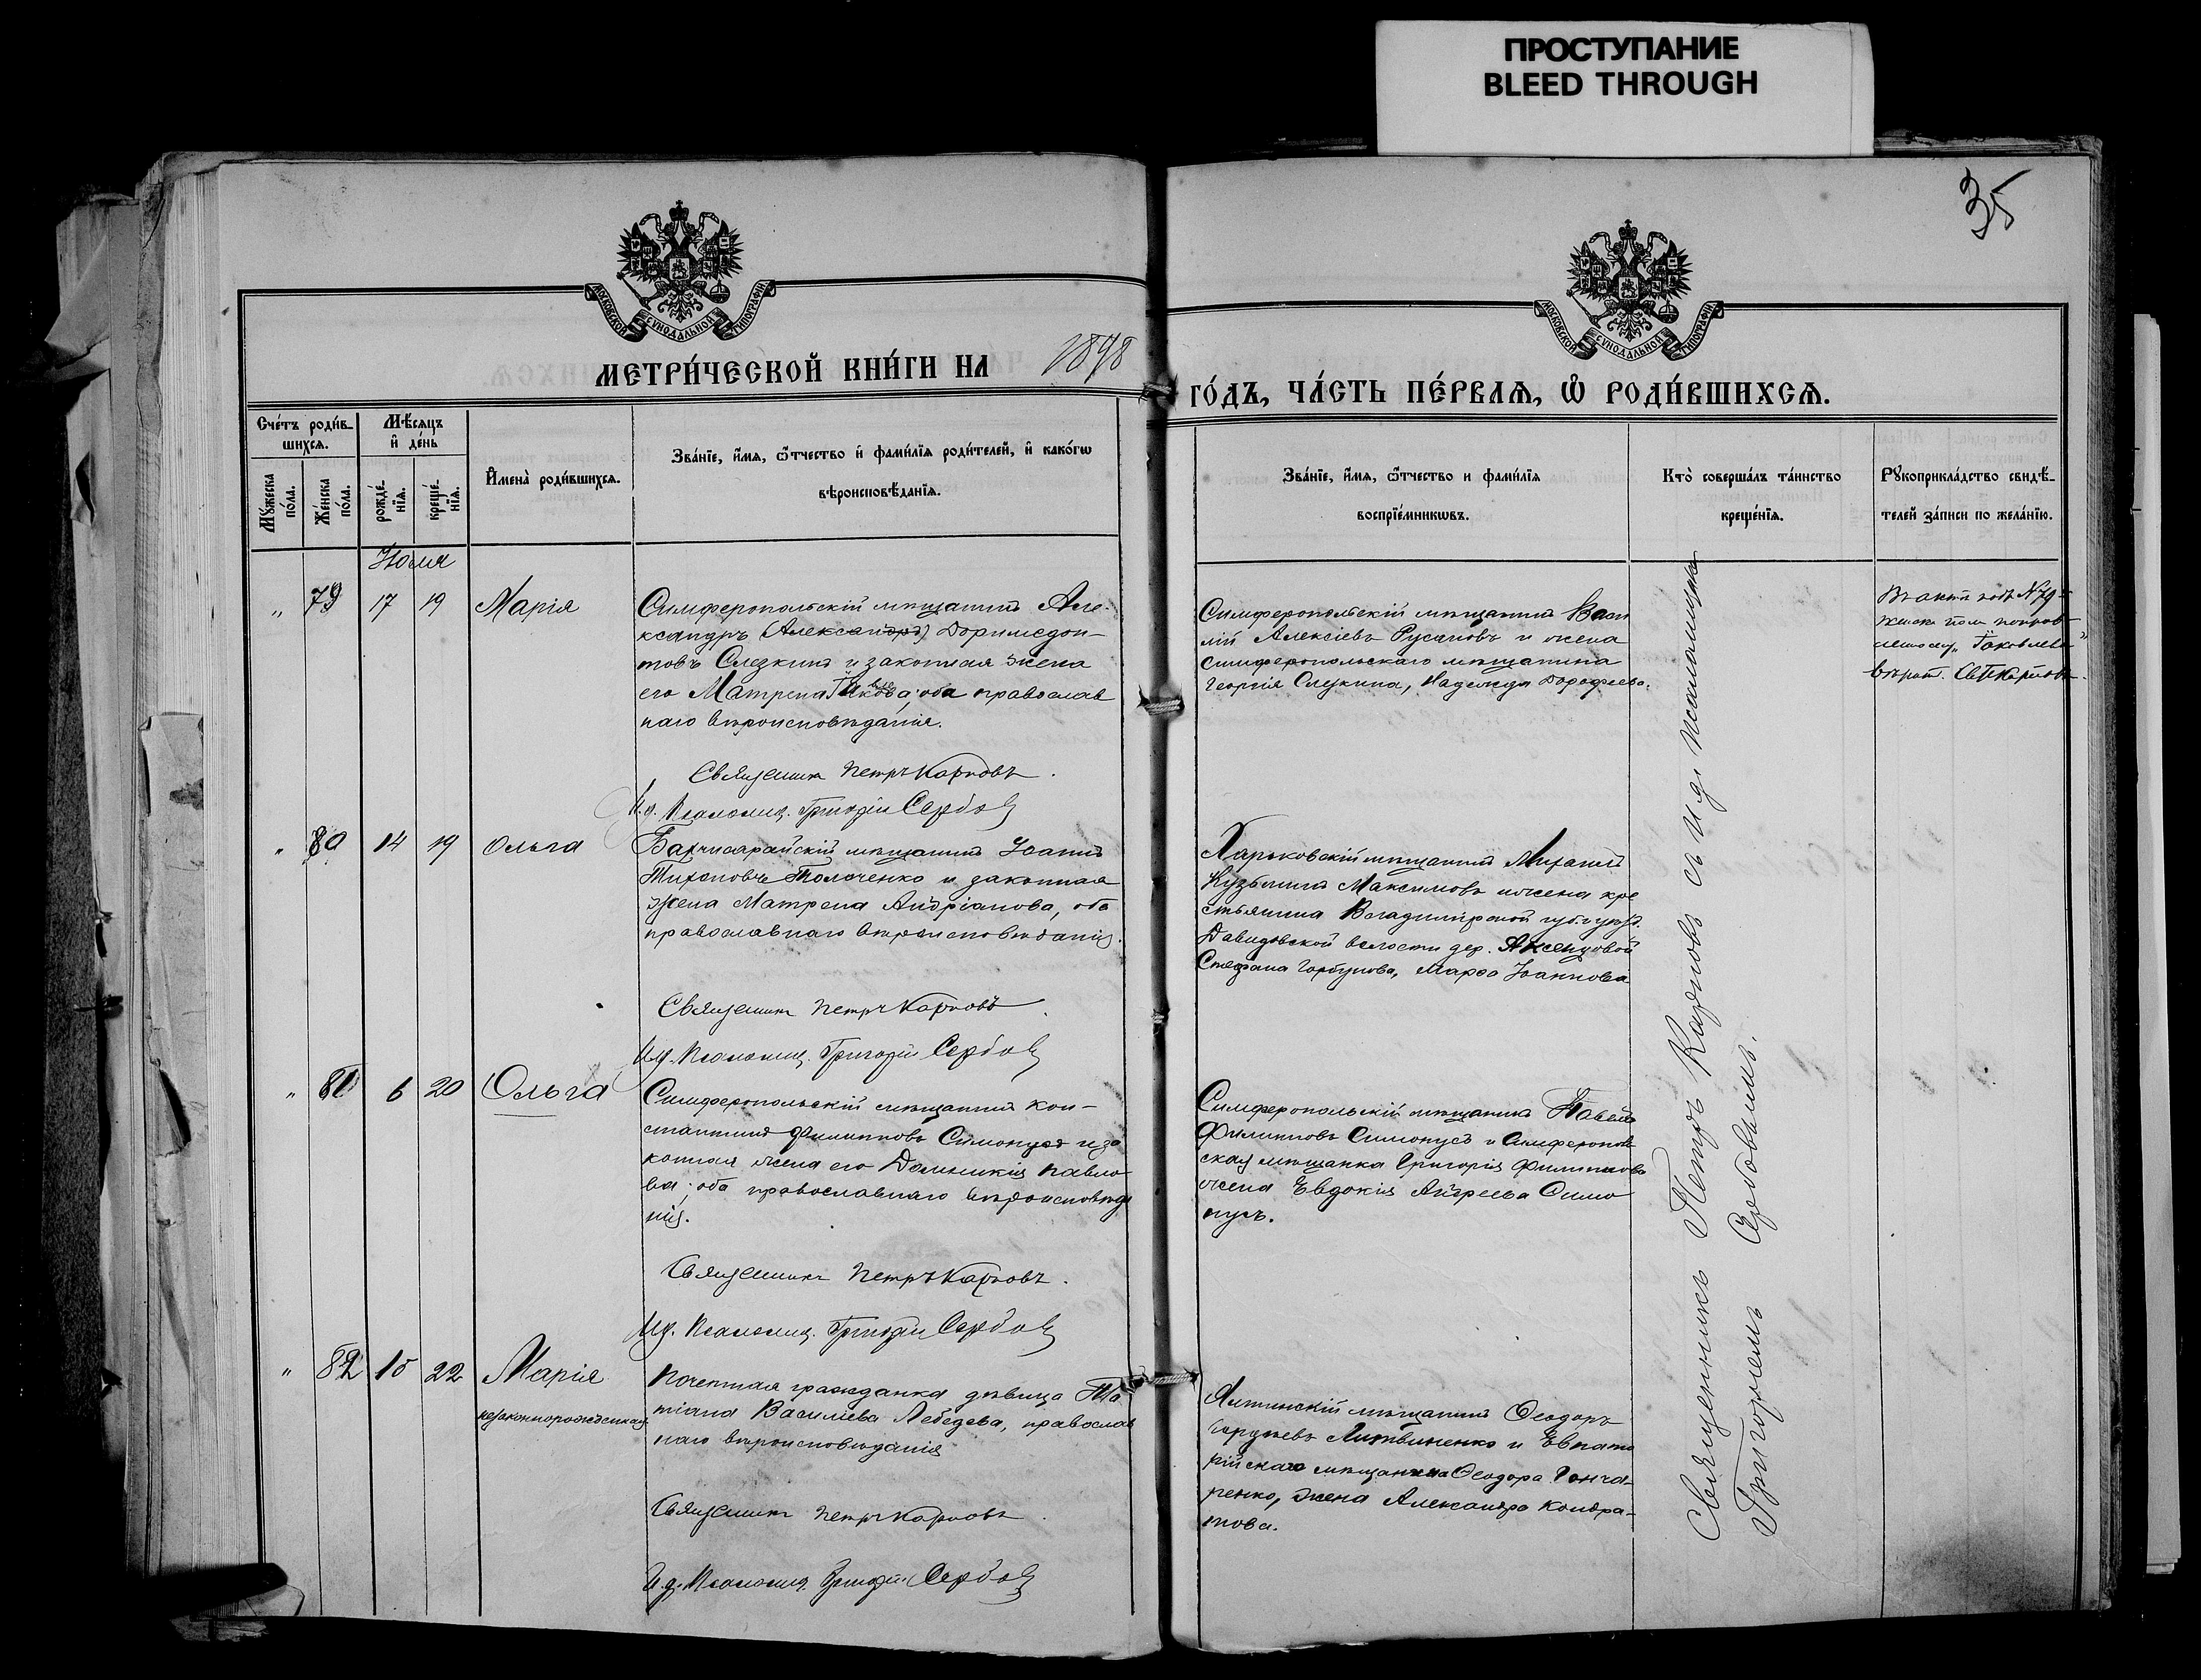 ПРОСТУПАНИЕ
BLEED THROUGH
35
МОСКОВСКОЙ СѴНОДАЛЬНОЙ ТИПОГРАФІИ
МОСКОВСКОЙ СѴНОДАЛЬНОЙ ТИПОГРАФІИ
МЕТРИ́ЧЕСКОЙ КНИ́ГИ НА 1898
ГО́ДЪ, ЧА́СТЬ ПЕ́РВАѦ, Ѡ РОДИ́ВШИХСѦ.
Сче́тъ роди́в-
шихсѧ.
Мѣ́сѧцъ
и де́нь
Мꙋ́жеска по́ла.
Же́нска по́ла.
рожде́-
нїѧ.
креще́-
нїѧ.
Имена̀ роди́вшихсѧ.
Зва́нїе, и́мѧ, ѻ́тчество и фами́лїѧ роди́телей, и како́гѡ
вѣроисповѣ́данїѧ.
Зва́нїе, и́мѧ, ѻ́тчество и фами́лїѧ
воспрїе́мникѡвъ.
Кто̀ соверша́лъ та́инство
креще́нїѧ.
Рꙋкоприкла́дство свидѣ́-
телей за́писи по жела́нїю.
Іюля
„ 79 17 19 Марія
Симферопольскій мѣщанинъ Але-
ксандръ (Александръ) Доримедон-
товъ Слезкинъ и законная жена
его Матрена Яковлева; оба православ
наго вѣроисповѣданія.
Священникъ Петръ Карповъ.
И.д. Псаломщ. Григорій Сербовъ
Симферопольскій мѣщанинъ Васи
лій Алексіевъ Русановъ и жена
симферопольскаго мѣщанина
Георгія Слезкина, Надежда Дорофеева.
Въ актѣ подъ № 79
женск. пола
Яковлева
вѣрно. Св. П. Карповъ
„ 80 14 19 Ольга
Бахчисарайскій мѣщанинъ Іоаннъ
Тихоновъ Толоченко и законная
жена Матрена Андріанова, оба
православнаго вѣроисповѣданія.
Священникъ Петръ Карповъ.
И.д. Псаломщ. Григорій Сербовъ
Харьковскій мѣщанинъ Михаилъ
Кузьминъ Максимовъ и жена кре
стьянина Владимірской губ.
Давидовской волости дер. Аксенцовой
Стефана Горбунова, Марфа Іоаннова
„ 81 6 20 Ольга
Симферопольскій мѣщанинъ Кон-
стантинъ Филипповъ Симонусъ и за
конная жена его Домникія Павло
ва; оба православнаго вѣроисповѣда
нія.
Священникъ Петръ Карповъ.
И.д. Псаломщ. Григорій Сербовъ
Симферопольскій мѣщанинъ Павелъ
Филипповъ Симонусъ и Симферополь
ская мѣщанка Григорія Филиппова
жена Евдокія Андреева Симо
нусъ.
„ 82 15 22 Марія
незаконнорожденная
Почетная гражданка дѣвица Та
тіана Василіева Лебедева, православ
наго вѣроисповѣданія
Священникъ Петръ Карповъ.
И.д. Псаломщ. Григорій Сербовъ
Ялтинскій мѣщанинъ Ѳеодоръ
Литвиненко и Евпато
рійскаго мѣщанина Ѳеодора Гонча-
ренко, жена Александра Кондра-
това.
Священникъ Петръ Карповъ съ и.д. псаломщика
Григоріемъ Сербовымъ.